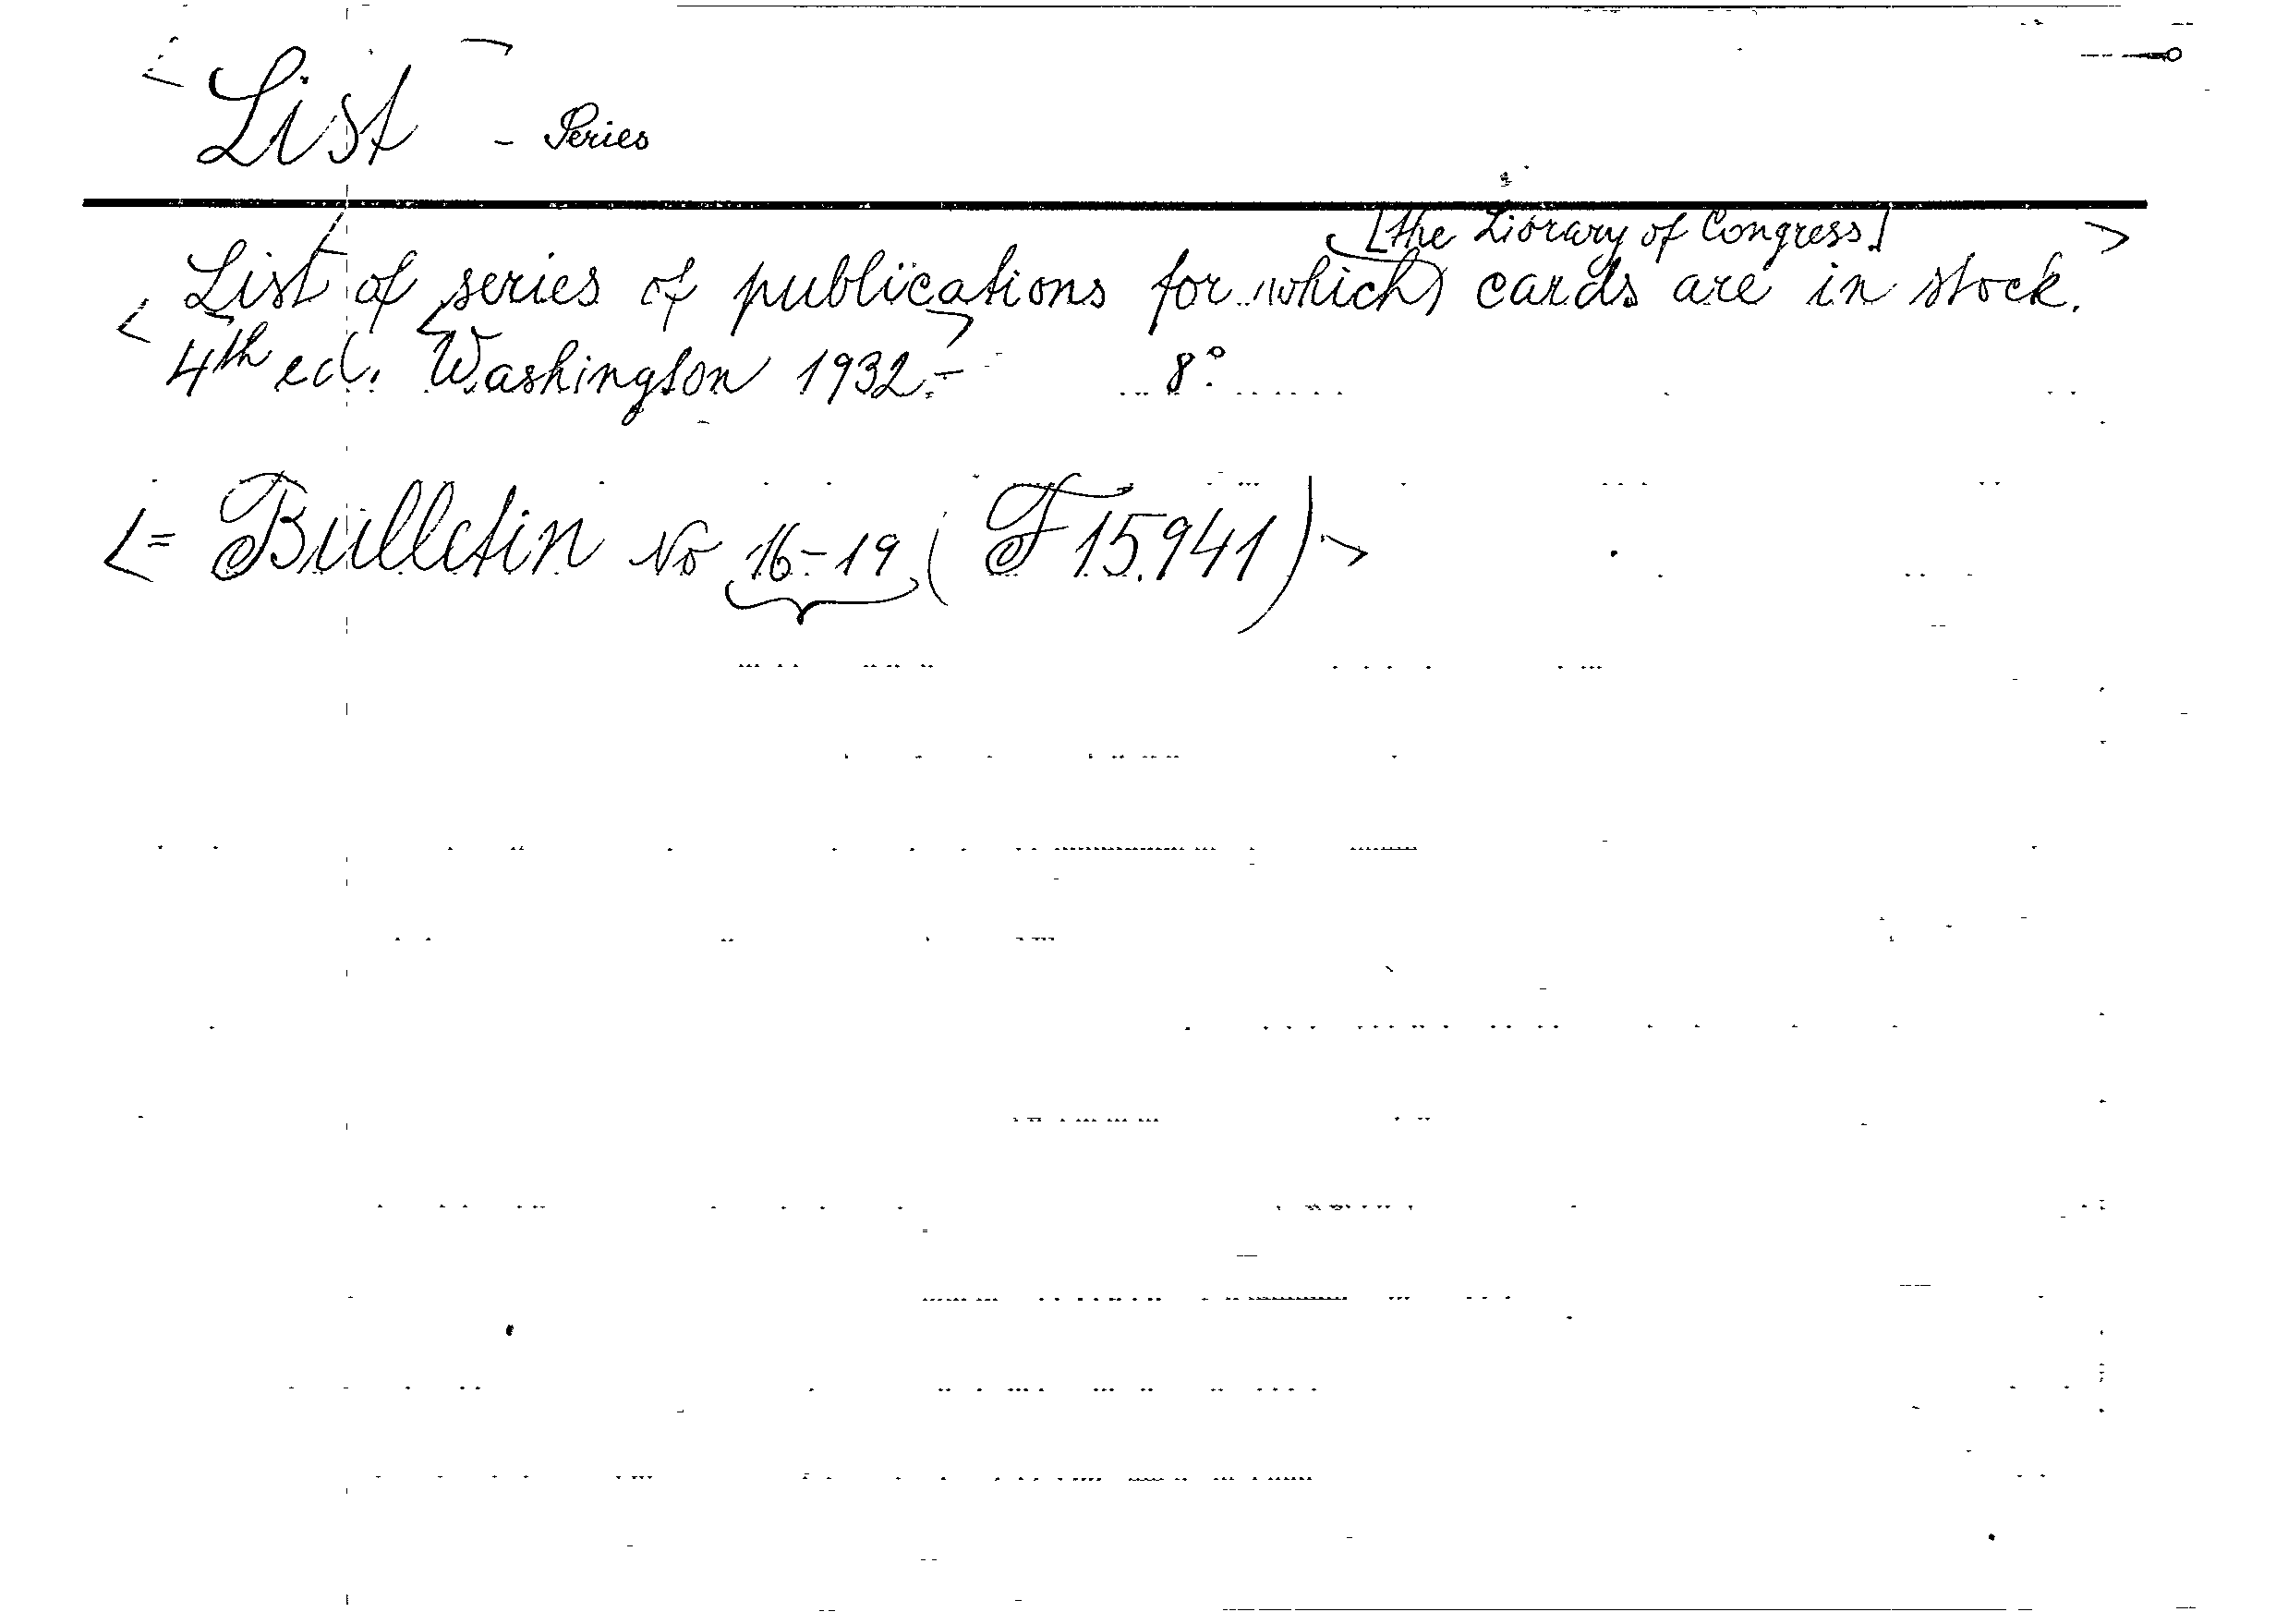 List - Series
[the Library of Congress]
List of series of publications for which cards are in stock.
4th ed. Washington 1932.- 8°.
= Bulletin No 16-19 (F 15.941)